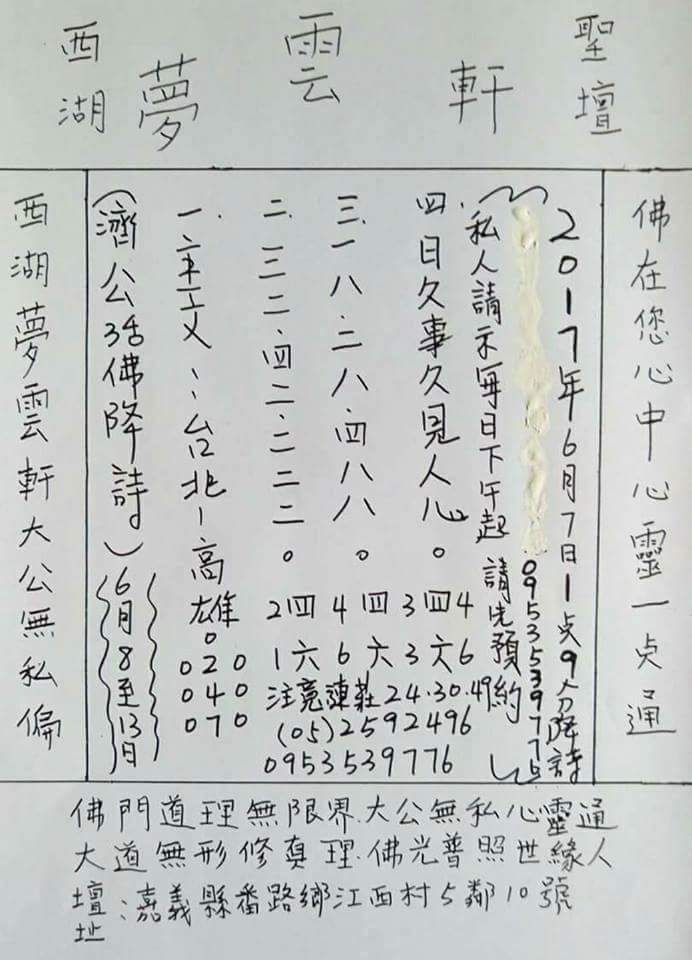 西湖 夢雲軒 聖壇
佛在您心中心靈一点通
2017年6月7日1点9分降詩
0953539776
私人請示每日下午起 請先預約
四.日久事久見人心。
三.一八.二八.四八八。
二.三二.四二.二二二。
一.文:台北-高雄。
020
040
070
2四 4四 3四4
1六 6六 3六6
注意連莊24.30.49
(05)2592496
0953539776
(濟公活佛降詩)6月8至13日
西湖夢雲軒大公無私偏
佛門道理無限界.大公無私心靈通
大道無形修真理.佛光普照世緣人
壇址:嘉義縣番路鄉江西村5鄰10號